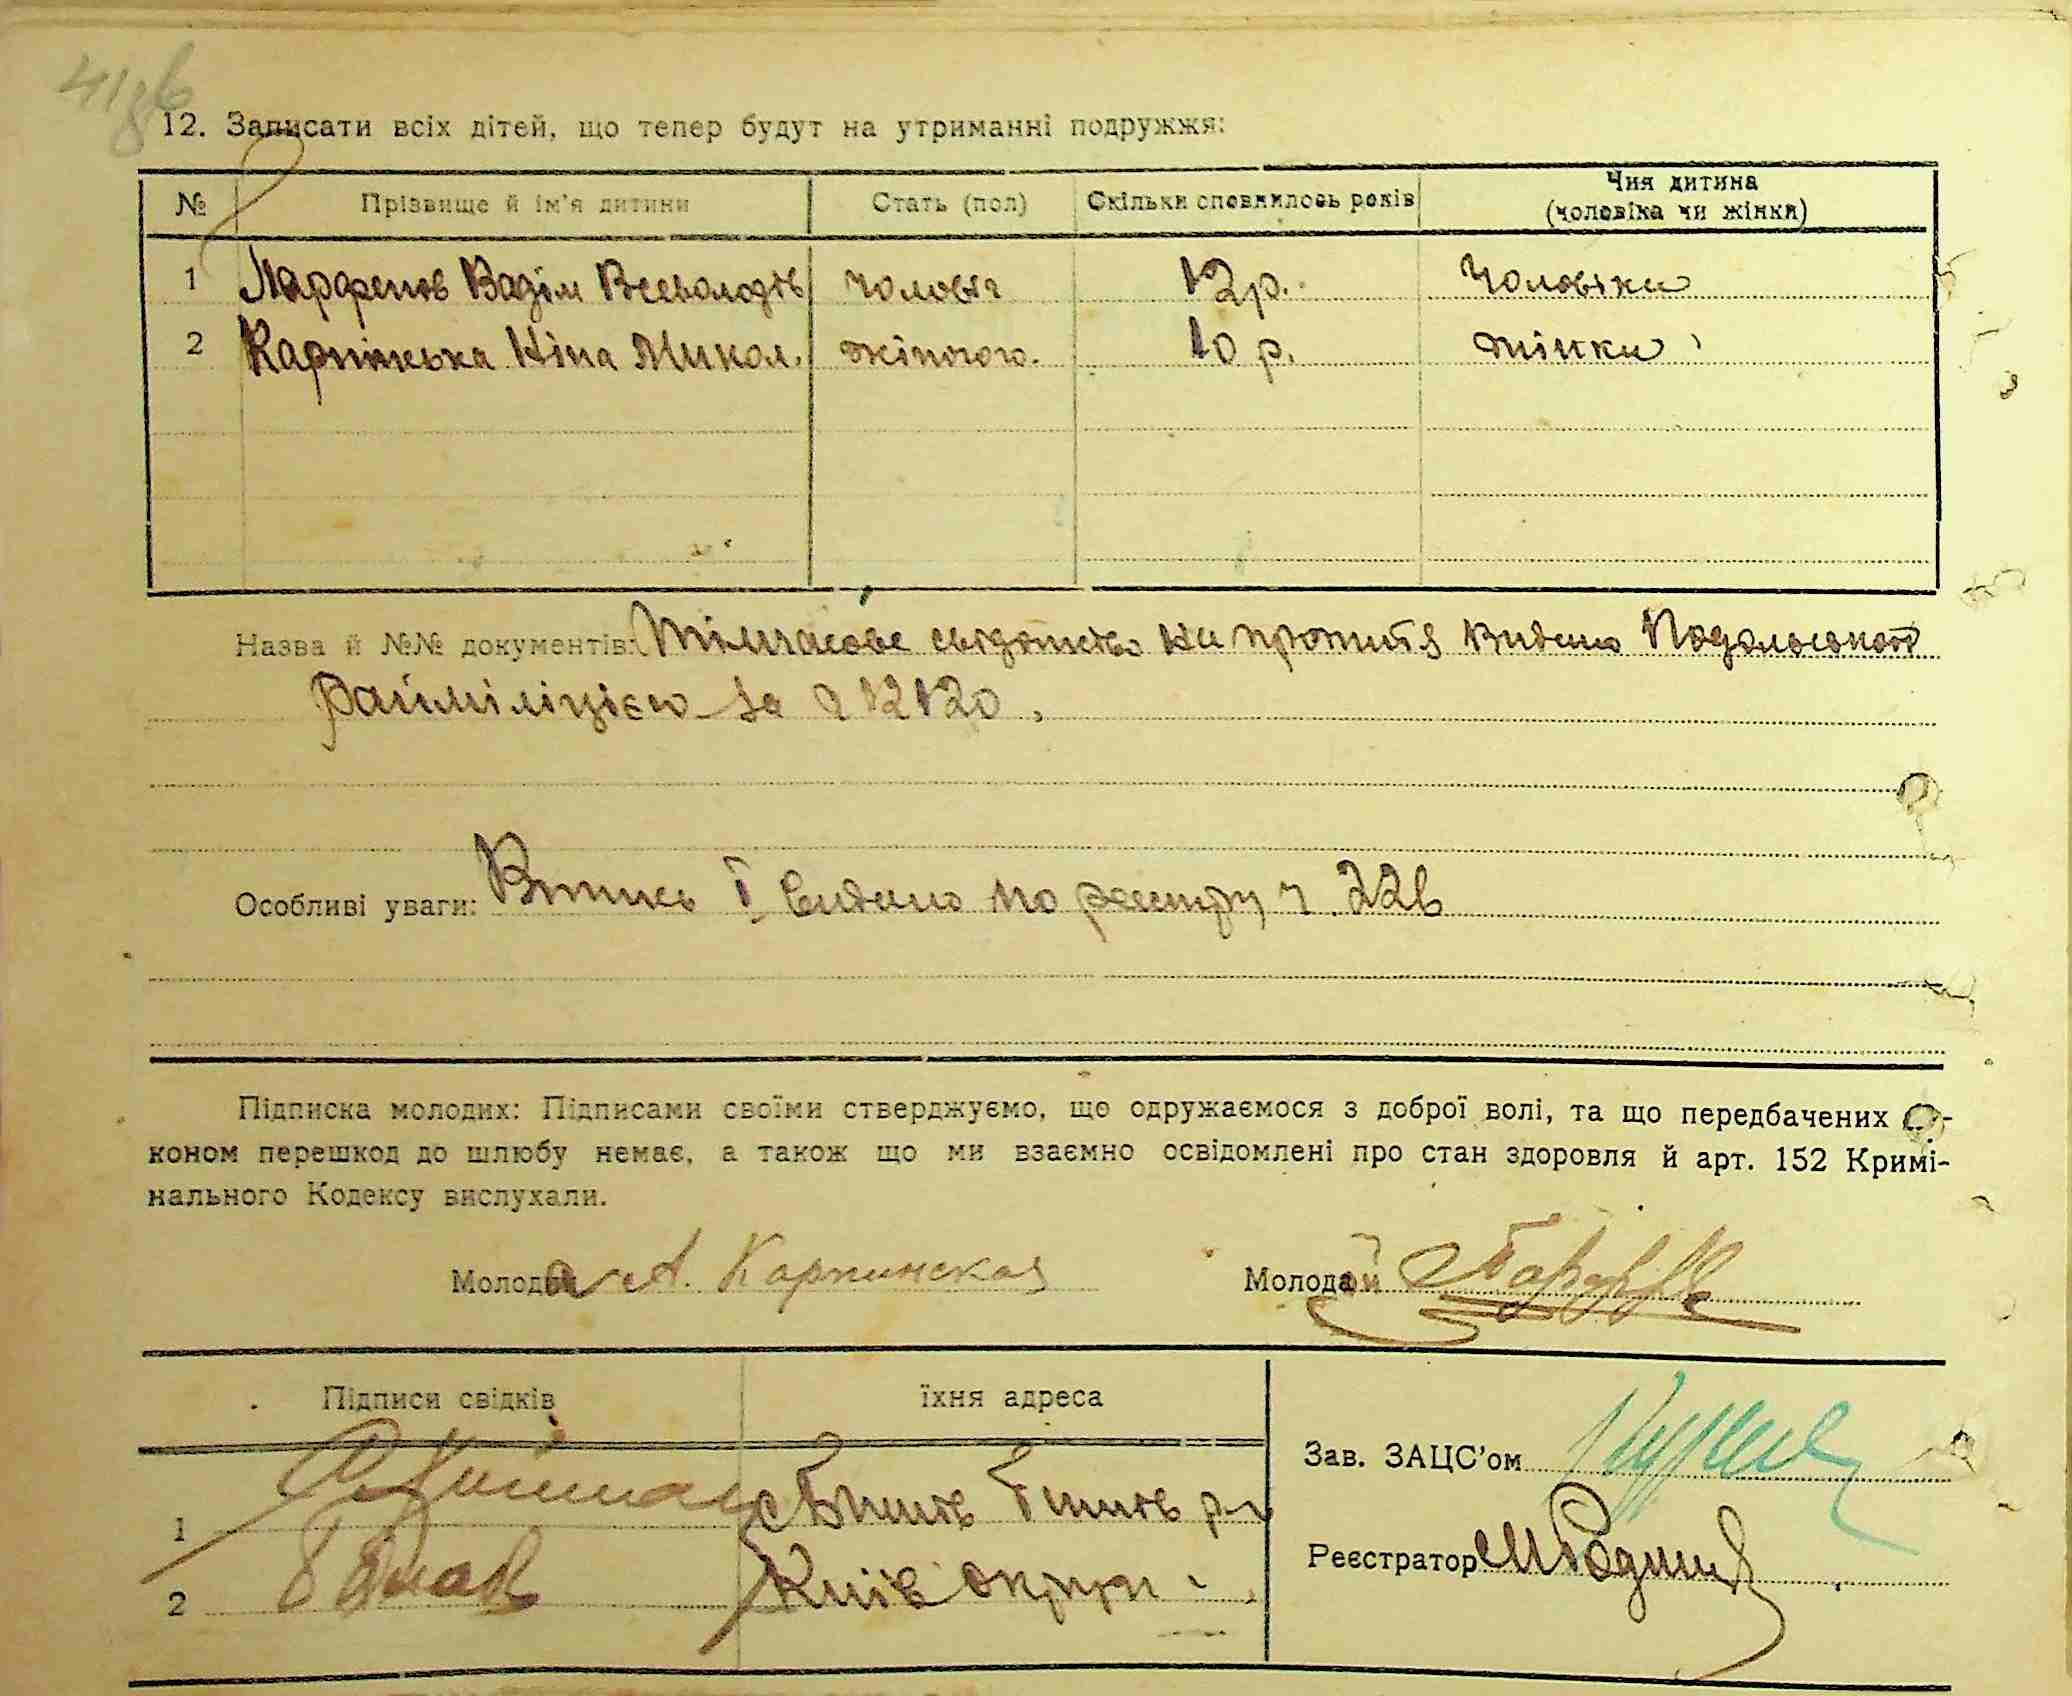 12. Записати всіх дітей, що тепер будут на утриманні подружжя:
№ Прізвище й ім'я дитини Стать (пол) Скільки сповнилось років Чия дитина (чоловіка чи жінки)
1 Парфенов Вадім Всеволодів чоловіч 12 р. Чоловіка
2 Карпінська Ніна Микол. жіночого. 10 р. жінки
Назва й №№ документів: Тімчасове свідоцтво на прожиття видано Подольською
Райміліцією за 912120.
Особливі уваги: Випись І видано по реєстру ч. 226
Підписка молодих: Підписами своїми стверджуємо, що одружаємося з доброї волі, та що передбачених
коном перешкод до шлюбу немає, а також що ми взаємно освідомлені про стан здоровля й арт. 152 Кримі-
нального Кодексу вислухали.
Молода А. Карпинская Молодий
Підписи свідків їхня адреса
Зав. ЗАЦС'ом
1
Реєстратор
2 Київ округи